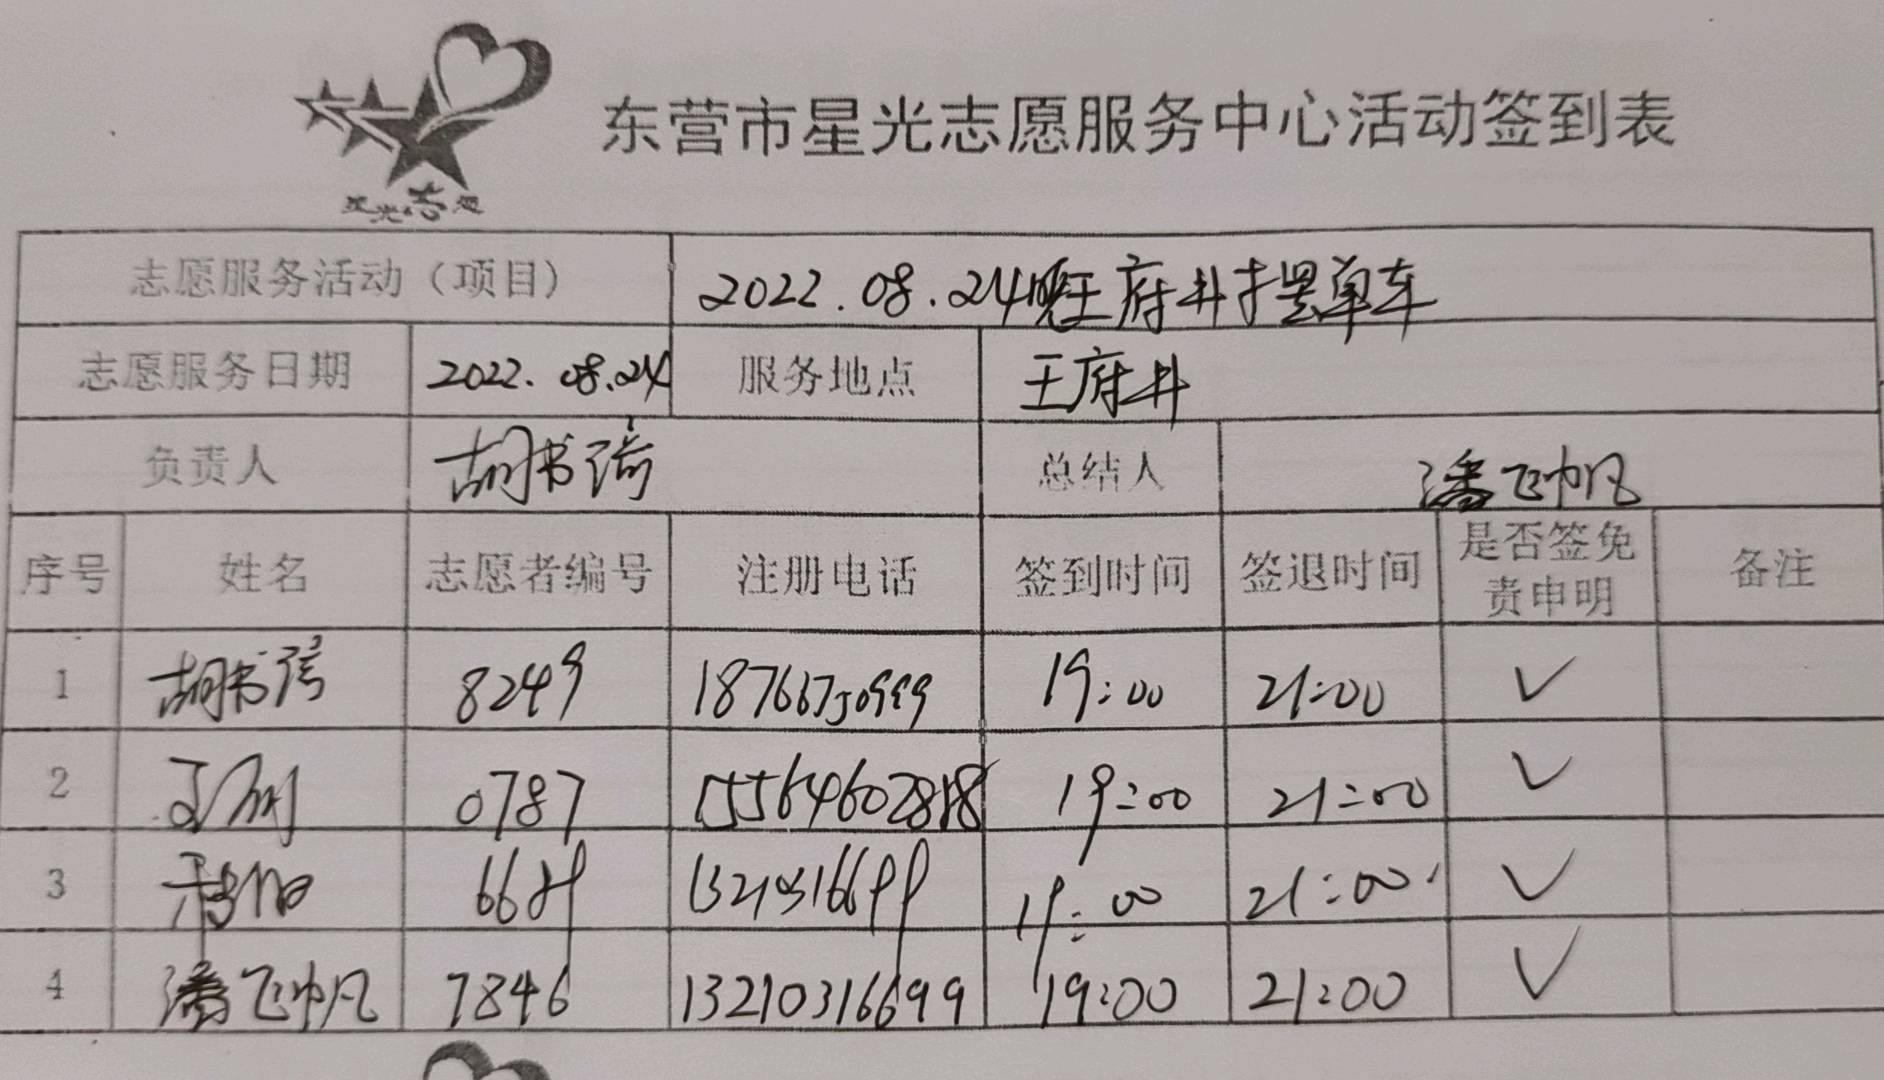 星光志愿
东营市星光志愿服务中心活动签到表
志愿服务活动（项目） 2022.08.24晚王府井摆单车
志愿服务日期 2022.08.24 服务地点 王府井
负责人 胡书琦 总结人 潘飞帆
序号 姓名 志愿者编号 注册电话 签到时间 签退时间 是否签免责申明 备注
1 胡书琦 8249 18766750999 19:00 21:00 ✓
2 0787 19:00 21:00 ✓
3 13210316699 19:00 21:00 ✓
4 潘飞帆 7846 13210316699 19:00 21:00 ✓